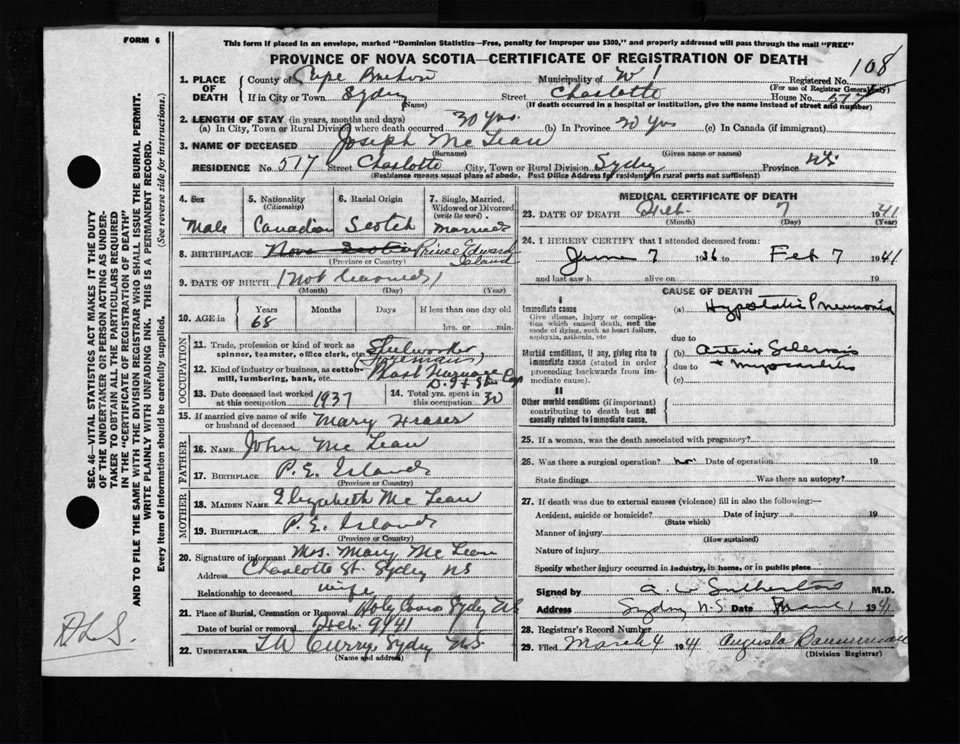 FORM 6
This form if placed in an envelope, marked "Dominion Statistics—Free, penalty for improper use $300," and properly addressed will pass through the mail "FREE"
PROVINCE OF NOVA SCOTIA—CERTIFICATE OF REGISTRATION OF DEATH
108
1. PLACE OF DEATH
County of Cape Breton Municipality of No 1 Registered No.
(For use of Registrar General only)
If in City or Town Sydney Street Charlotte House No. 517
(Name) (If death occurred in a hospital or institution, give the name instead of street and number)
2. LENGTH OF STAY (in years, months and days)
(a) In City, Town or Rural Division where death occurred 30 Yrs. (b) In Province 30 Yrs (c) In Canada (if immigrant)
3. NAME OF DECEASED Joseph Mc Lean
(Surname) (Given name or names)
RESIDENCE No 517 Street Charlotte City, Town or Rural Division Sydney Province N.S.
(Residence means usual place of abode. Post Office Address for residents in rural parts not sufficient)
4. Sex
Male
5. Nationality
(Citizenship)
Canadian
6. Racial Origin
Scotch
7. Single, Married, Widowed or Divorced
(write the word)
Married
8. BIRTHPLACE Nova Scotia Prince Edward Island
(Province or Country)
9. DATE OF BIRTH (Not learned)
(Month) (Day) (Year)
10. AGE in
Years Months Days If less than one day old
68 hrs. or min.
OCCUPATION
11. Trade, profession or kind of work as spinner, teamster, office clerk, etc. Steelworker
(Foreman)
12. Kind of industry or business, as cotton-mill, lumbering, bank, etc. Blast Furnace
D. I & Steel Corp
13. Date deceased last worked at this occupation 1937
14. Total yrs. spent in this occupation 30
15. If married give name of wife or husband of deceased Mary Fraser
FATHER
16. NAME John Mc Lean
17. BIRTHPLACE P.E. Island
(Province or Country)
MOTHER
18. MAIDEN NAME Elizabeth Mc Lean
19. BIRTHPLACE P.E. Island
(Province or Country)
20. Signature of informant Mrs. Mary Mc Lean
Address Charlotte St. Sydney NS
Relationship to deceased wife
21. Place of Burial, Cremation or Removal Holy Cross Sydney NS
Date of burial or removal Feb. 9/41
22. UNDERTAKER T W Curry, Sydney N.S.
(Name and address)
MEDICAL CERTIFICATE OF DEATH
23. DATE OF DEATH Feb. 7 1941
(Month) (Day) (Year)
24. I HEREBY CERTIFY that I attended deceased from:
June 7 1936 to Feb 7 1941
and last saw h alive on 19
CAUSE OF DEATH
I
Immediate cause
Give disease, injury or complication which caused death, not the mode of dying, such as heart failure, asphyxia, asthenia, etc
(a) Hypostatic Pneumonia
due to
Morbid conditions, if any, giving rise to immediate cause (stated in order proceeding backwards from immediate cause).
(b) Arterio Sclerosis
due to + myocarditis
(c)
II
Other morbid conditions (if important) contributing to death but not causally related to immediate cause.
25. If a woman, was the death associated with pregnancy?
26. Was there a surgical operation? no. Date of operation 19
State findings Was there an autopsy?
27. If death was due to external causes (violence) fill in also the following:—
Accident, suicide or homicide? Date of injury 19
(State which)
Manner of injury
(How sustained)
Nature of injury
Specify whether injury occurred in industry, in home, or in public place
Signed by M.D.
Address Sydney N.S. Date March 1 1941
28. Registrar's Record Number
29. Filed March 4 1941 Augusta Bannerman
(Division Registrar)
SEC. 46—VITAL STATISTICS ACT MAKES IT THE DUTY
OF THE UNDERTAKER OR PERSON ACTING AS UNDER-
TAKER TO OBTAIN ALL THE PARTICULARS REQUIRED
IN THE "CERTIFICATE OF REGISTRATION OF DEATH"
AND TO FILE THE SAME WITH THE DIVISION REGISTRAR WHO SHALL ISSUE THE BURIAL PERMIT.
WRITE PLAINLY WITH UNFADING INK. THIS IS A PERMANENT RECORD.
Every item of information should be carefully supplied. (See reverse side for instructions.)